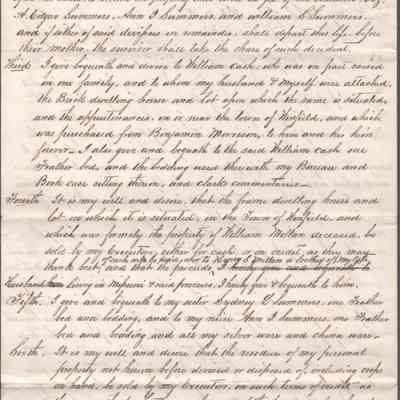 A. Edgar Summers, Ann I Summers, and William S Summers.
and if either of said devisees in remainder, shall depart this life before
their mother, the survivor shall take the share of such decedent.
Third I give bequeath and devise to William Cash, who was in part raised
in our family, and to whom my husband & myself were attached,
the Brick dwelling house and lot upon which the same is situated,
and the appurtenances, in or near the town of Winfield, and which
was purchased from Benjamin Morrison, to him and his heirs
forever. I also give and bequeath to the said William Cash one
Feather bed, and the bedding used therewith my Bureau and
Book case sitting thereon, and clarks commentaries.
Fourth It is my will and desire, that the frame dwelling house and
lot on which it is situated, in the Town of Winfield, and
which was formerly the property of William Millan deceased, be
sold by my Executors, either for cash, or on credit, as they may
think best, and that the proceeds, I hereby give and bequeath to
living in Missouri & said proceeds, I hereby give & bequeath to him.
Fifth. I give and bequeath to my sister Sydney D Summers, one Feather
bed and bedding, and to my niece Ann I Summers, one Feather
bed and bedding and all my silver ware and china ware.
Sixth, It is my will and desire that the residue of my personal
property not herein before devised or disposed of, including crops
on hand, be sold by my Executors, on such terms of credit as